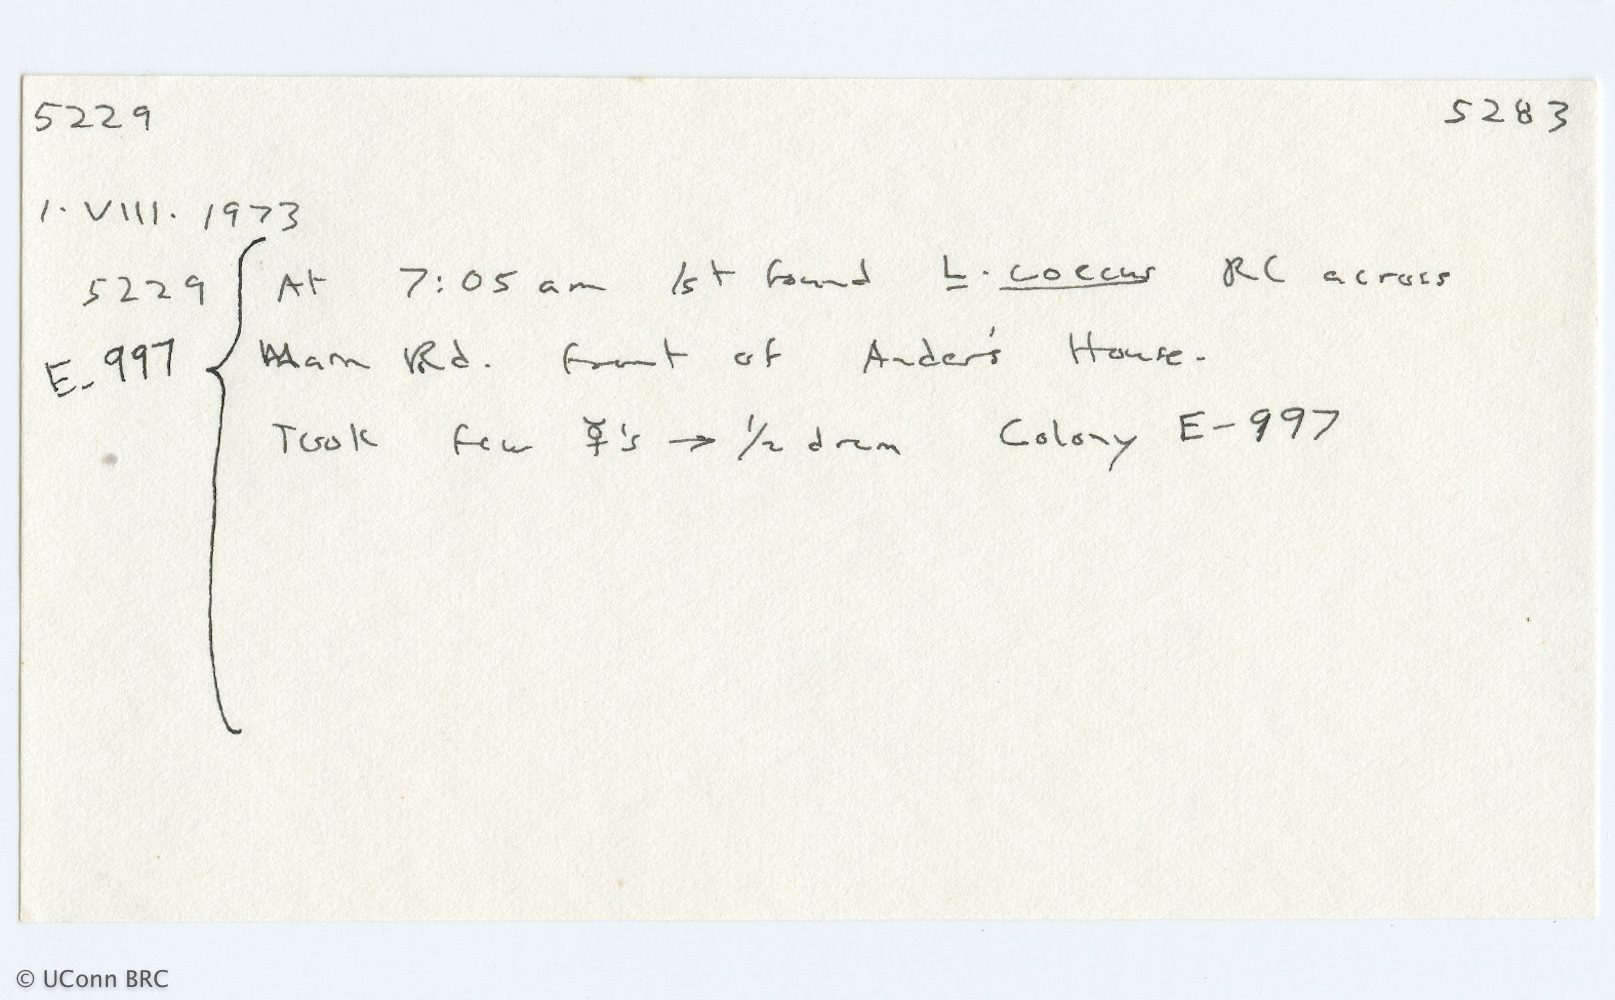 5229 5283
1. VIII. 1973
5229 At 7:05 am 1st found L. coecus RC across
E-997 Main Rd. front of Ander's House.
Took few ☿'s → 1/2 dram Colony E-997
© UConn BRC